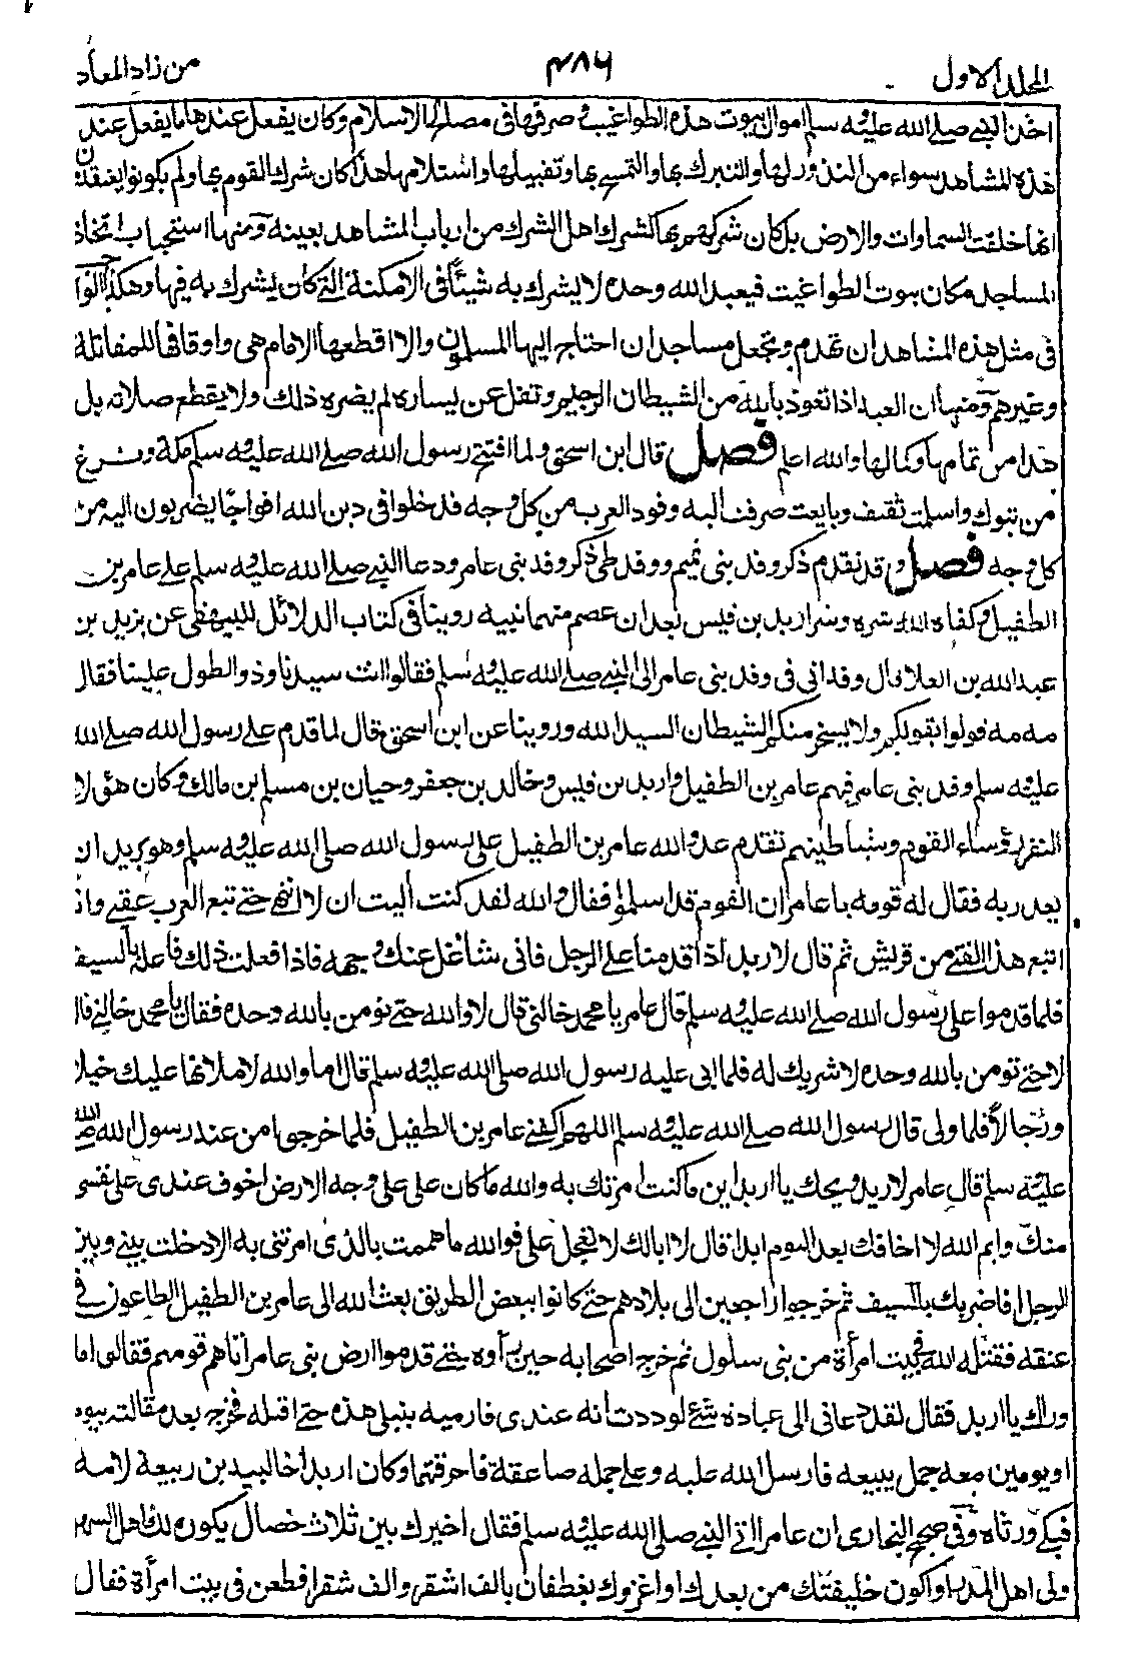 المجلد الاول ٤٨٦ من زاد المعاد
اخذ النبي صلے الله عليه وسلم اموال بيوت هذه الطواغيت صرفها في مصالح الاسلام وكان يفعل عندها ما يفعل عند
هذه المشاهد سواء من النذور لها والتبرك بها والتمسح بها وتقبيلها واستلامها هذا كان شرك القوم بها ولم يكونوا يعتقدون
انها خلقت السماوات والارض بل كان شركهم بها كشرك اهل الشرك من ارباب المشاهد بعينه ومنها استحباب اتخاذ
المساجد مكان بيوت الطواغيت فيعبد الله وحده لا يشرك به شيئًا في الامكنة التي كان يشرك به فيها وهكذا الواجب
في مثل هذه المشاهد ان تهدم وتجعل مساجد ان احتاج اليها المسلمون والا اقطعها الامام هي واوقافها للمقاتلة
وغيرهم ومنها ان العبد اذا تعوذ بالله من الشيطان الرجيم وتفل عن يساره لم يضره ذلك ولا يقطع صلاته بل
هذا من تمامها وكمالها والله اعلم فصل قال ابن اسحق ولما افتتح رسول الله صلے الله عليه وسلم مكة وفرغ
من تبوك واسلمت ثقيف وبايعت ضربت اليه وفود العرب من كل وجه فدخلوا في دين الله افواجًا يضربون اليه من
كل وجه فصل وقد تقدم ذكر وفد بني تميم ووفد طي ذكر وفد بني عامر ودعا النبي صلے الله عليه وسلم علے عامر بن
الطفيل وكفاه الله شره وشر اربد بن قيس بعد ان عصم منهما نبيه روينا في كتاب الدلائل للبيهقي عن يزيد بن
عبد الله بن العلا قال وفد ابي في وفد بني عامر الى النبي صلے الله عليه وسلم فقالوا انت سيدنا وذو الطول علينا فقال
مه مه قولوا بقولكم ولا يسخر منكم الشيطان السيد الله وروينا عن ابن اسحق قال لما قدم علے رسول الله صلے الله
عليه وسلم وفد بني عامر فيهم عامر بن الطفيل واربد بن قيس وخالد بن جعفر وحيان بن مسلم بن مالك وكان هؤلا
النفر رؤساء القوم وشياطينهم تقدم عدو الله عامر بن الطفيل على رسول الله صلى الله عليه وسلم وهو يريد ان
يغدر به فقال له قومه يا عامر ان القوم قد اسلموا فقال والله لقد كنت اليت ان لا انتهي حتے تتبع العرب عقبي وانا
اتبع هذا الفتے من قريش ثم قال لاربد اذا قدمنا علے الرجل فاني شاغل عنك وجهه فاذا فعلت ذلك فاعله بالسيف
فلما قدموا على رسول الله صلے الله عليه وسلم قال عامر يا محمد خالني قال لا والله حتے تومن بالله وحده فقال يا محمد خالني قال
لا حتے تومن بالله وحده لا شريك له فلما ابى عليه رسول الله صلى الله عليه وسلم قال اما والله لاملانها عليك خيلا
ورجالًا فلما ولى قال رسول الله صلے الله عليه وسلم اللهم اكفني عامر بن الطفيل فلما خرجوا من عند رسول الله صلے الله
عليه وسلم قال عامر لاربد ويحك يا اربد اين ما كنت امرتك به والله ما كان علے وجه الارض اخوف عندي على نفسي
منك وايم الله لا اخافك بعد اليوم ابدا قال لا ابالك لا تعجل علي فوالله ما هممت بالذي امرتني به الا دخلت بيني وبين
الرجل افاضربك بالسيف ثم خرجوا راجعين الى بلادهم حتے كانوا ببعض الطريق بعث الله الى عامر بن الطفيل الطاعون في
عنقه فقتله الله في بيت امرأة من بني سلول ثم خرج اصحابه حين راوه حتے قدموا ارض بني عامر اتاهم قومهم فقالوا ما
وراك يا اربد فقال لقد دعاني الى عبادة شئ لوددت انه عندي فارميه بنبلي هذه حتے اقتله فخرج بعد مقالته بيوم
او يومين معه جمل يبيعه فارسل الله عليه وعلے جمله صاعقة فاحرقتهما وكان اربد اخا لبيد بن ربيعة لامه
فبكے ورثاه وفي صحيح البخاري ان عامرا اتي النبي صلى الله عليه وسلم فقال اخيرك بين ثلاث خصال يكون لك اهل السهل
ولي اهل المدر او اكون خليفتك من بعدك او اغزوك بغطفان بالف اشقر والف شقرا فطعن في بيت امرأة فقال